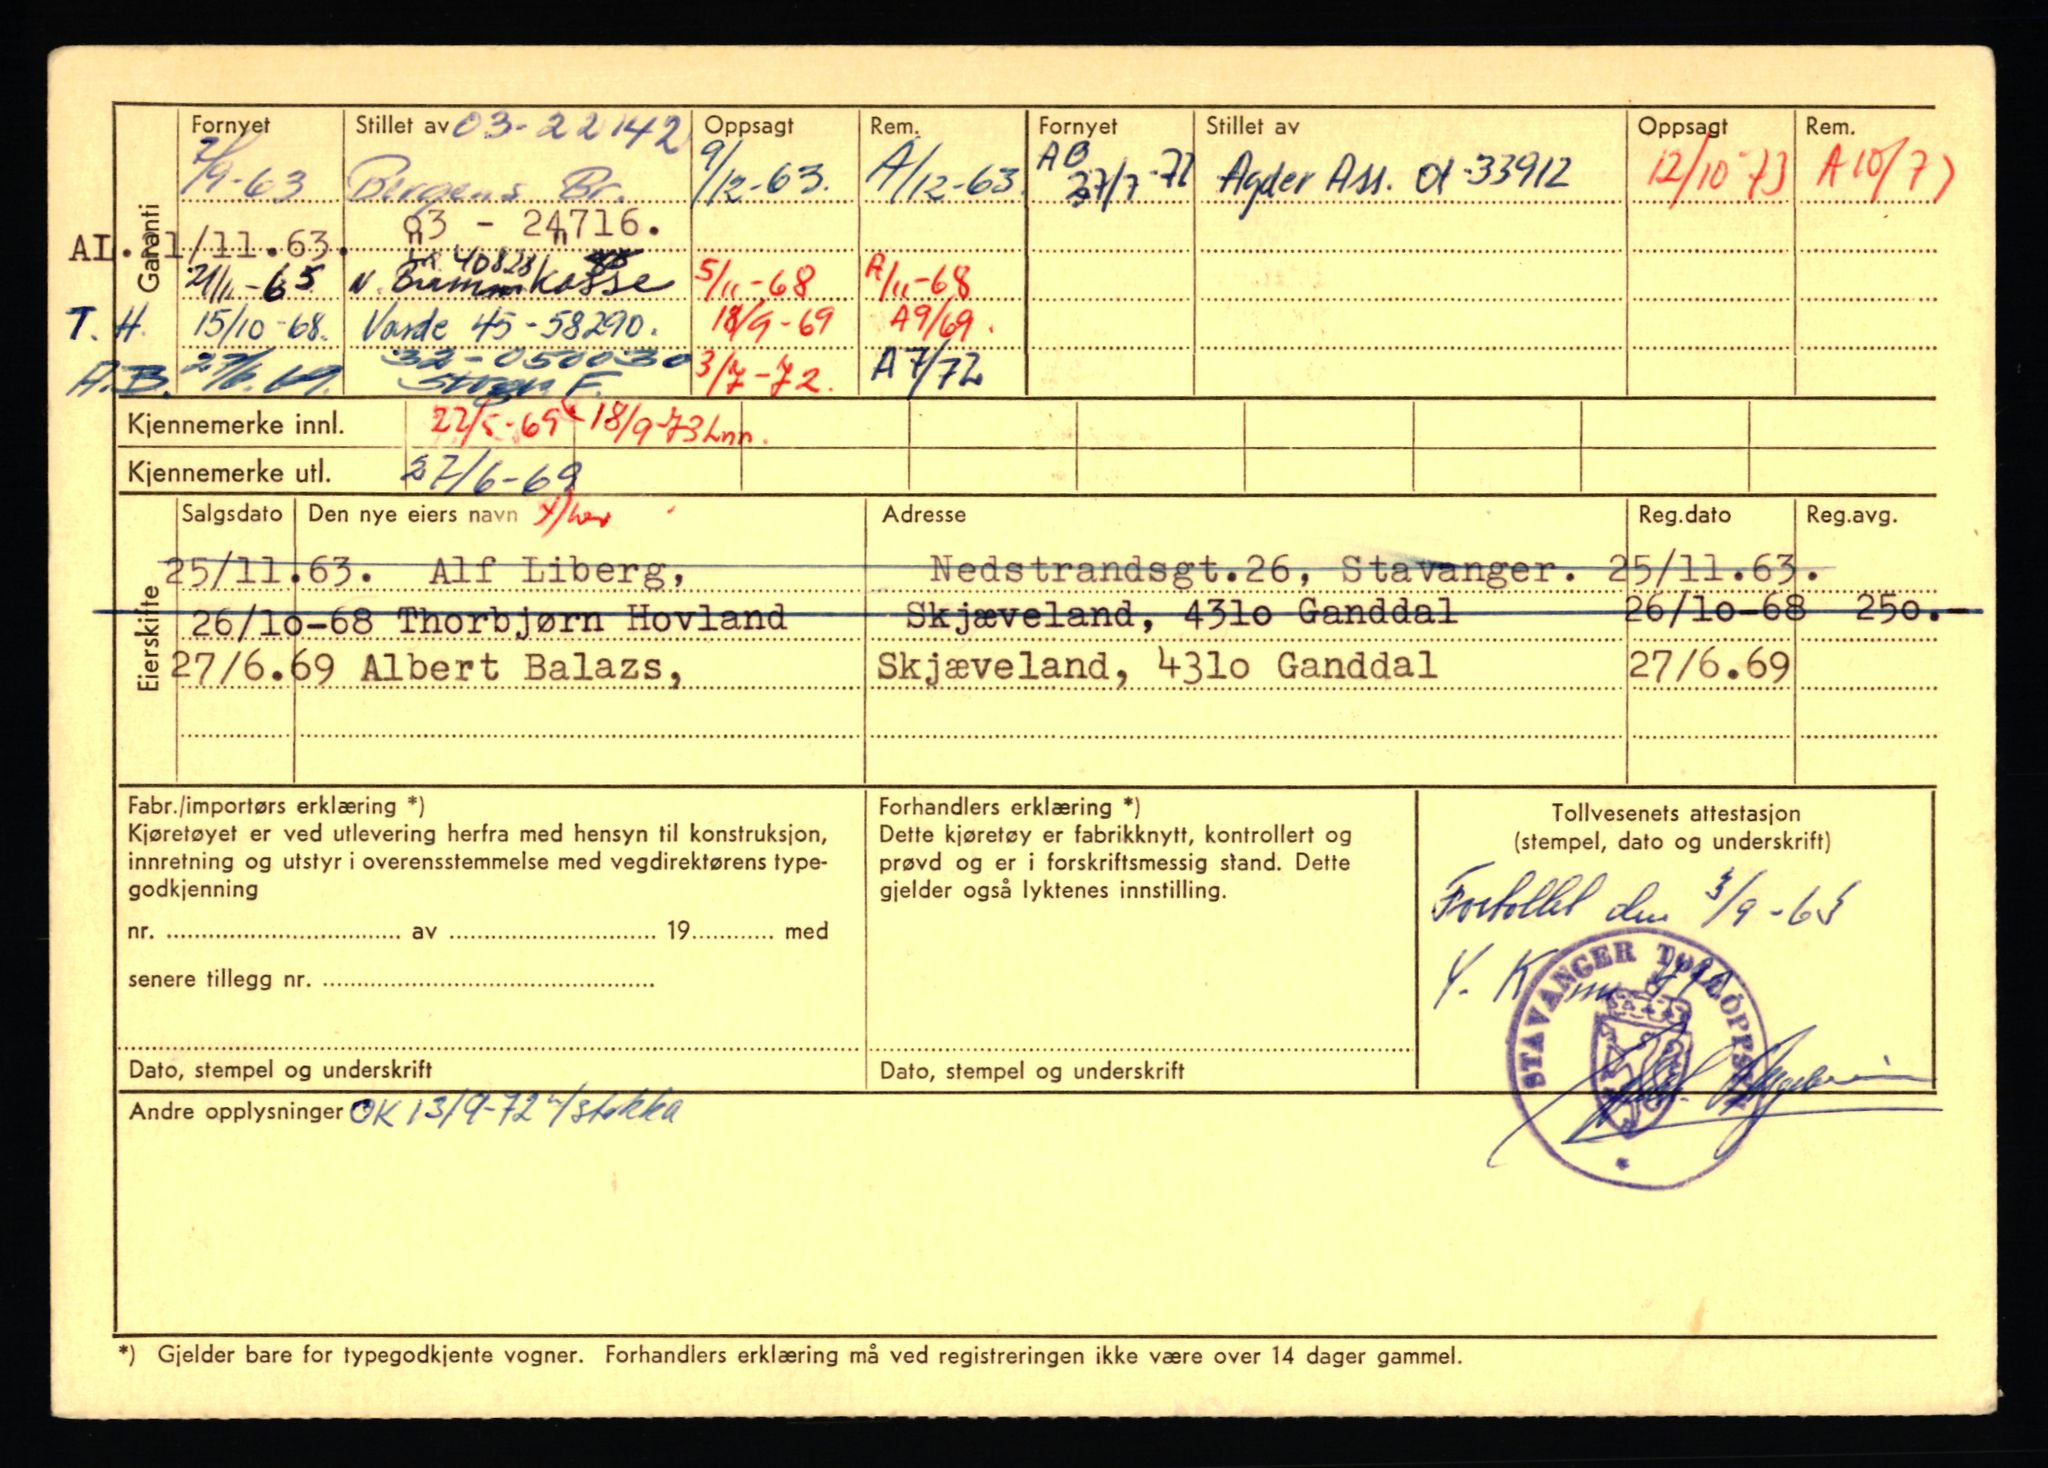 Garanti
Fornyet Stillet av 03-22142 Oppsagt Rem. Fornyet Stillet av Oppsagt Rem.
7/9-63 Bergens Br. 9/12-63. A/12-63. AB 27/7-72 Agder Ass. 01-33912 12/10-73 A10/73
AL. 21/11.63. 03 - 24716.
21/11-65 40828 kasse 5/11-68 A/11-68
T. H. 15/10-68. Varde 45-58290. 18/9-69 A9/69.
A.B. 27/6.69. 32-050030 3/7-72. A7/72
Kjennemerke innl. 22/5-69 18/9-73 Inn.
Kjennemerke utl. 27/6-69
Eierskifte
Salgsdato Den nye eiers navn Adresse Reg.dato Reg.avg.
25/11.63. Alf Liberg, Nedstrandsgt.26, Stavanger. 25/11.63.
26/10-68 Thorbjørn Hovland Skjæveland, 4310 Ganddal 26/10-68 250.-
27/6.69 Albert Balazs, Skjæveland, 4310 Ganddal 27/6.69
Fabr./importørs erklæring *)
Kjøretøyet er ved utlevering herfra med hensyn til konstruksjon,
innretning og utstyr i overensstemmelse med vegdirektørens type-
godkjenning
nr. .......... av .......... 19.......... med
senere tillegg nr. ..........
Dato, stempel og underskrift
Forhandlers erklæring *)
Dette kjøretøy er fabrikknytt, kontrollert og
prøvd og er i forskriftsmessig stand. Dette
gjelder også lyktenes innstilling.
Dato, stempel og underskrift
Tollvesenets attestasjon
(stempel, dato og underskrift)
Fortollet den 3/9-63
STAVANGER TOLLOPPSYN
Andre opplysninger OK 13/9-72 stokka
*) Gjelder bare for typegodkjente vogner. Forhandlers erklæring må ved registreringen ikke være over 14 dager gammel.